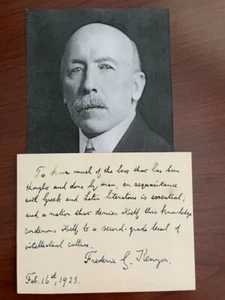 To know much of the best that has been
thought and done by man, an acquaintance
with Greek and Latin literature is essential;
and a nation that denies itself this knowledge
condemns itself to a second-grade level of
intellectual culture.
Frederic G. Kenyon.
Feb. 16th, 1923.